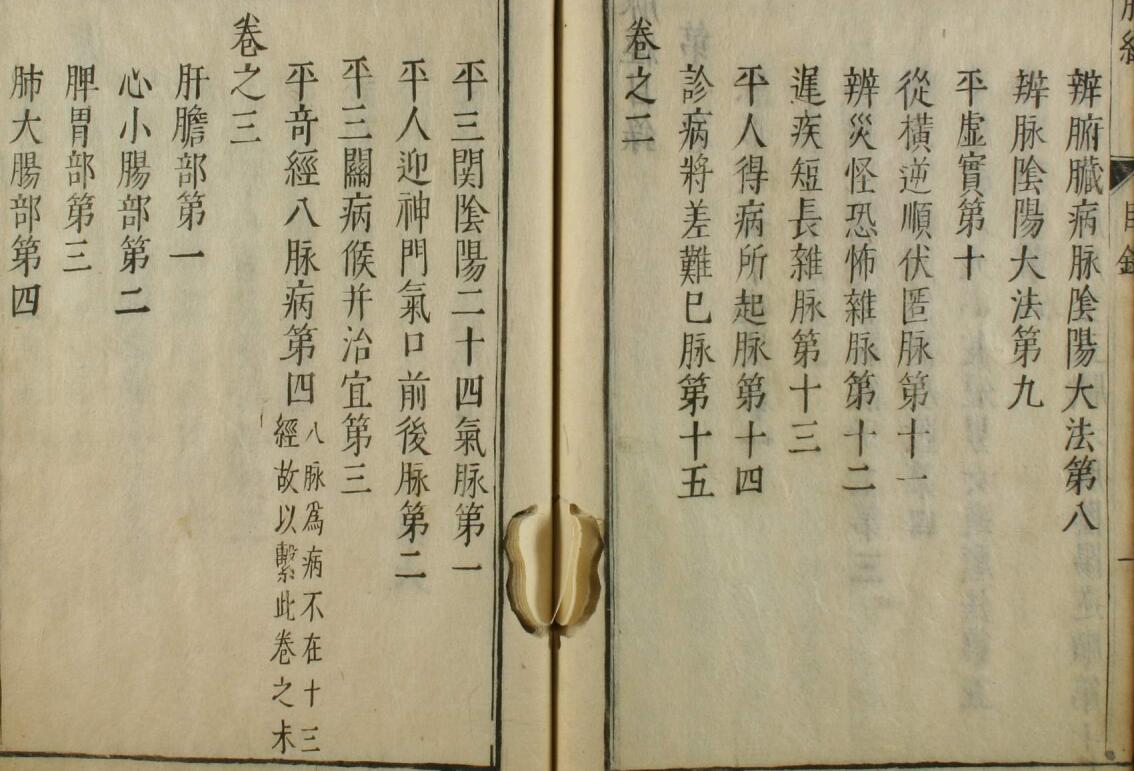 脉經
目錄
一
辨腑臓病脉隂陽大法第八
辨脉隂陽大法第九
平虛實第十
從橫逆順伏匿脉第十一
辨災怪恐怖雜脉第十二
遲疾短長雜脉第十三
平人得病所起脉第十四
診病將差難已脉第十五
卷之二
平三関隂陽二十四氣脉第一
平人迎神門氣口前後脉第二
平三關病候并治宜第三
平竒經八脉病第四 八脉爲病不在十三
經故以繫此卷之末
卷之三
肝膽部第一
心小腸部第二
脾胃部第三
肺大腸部第四